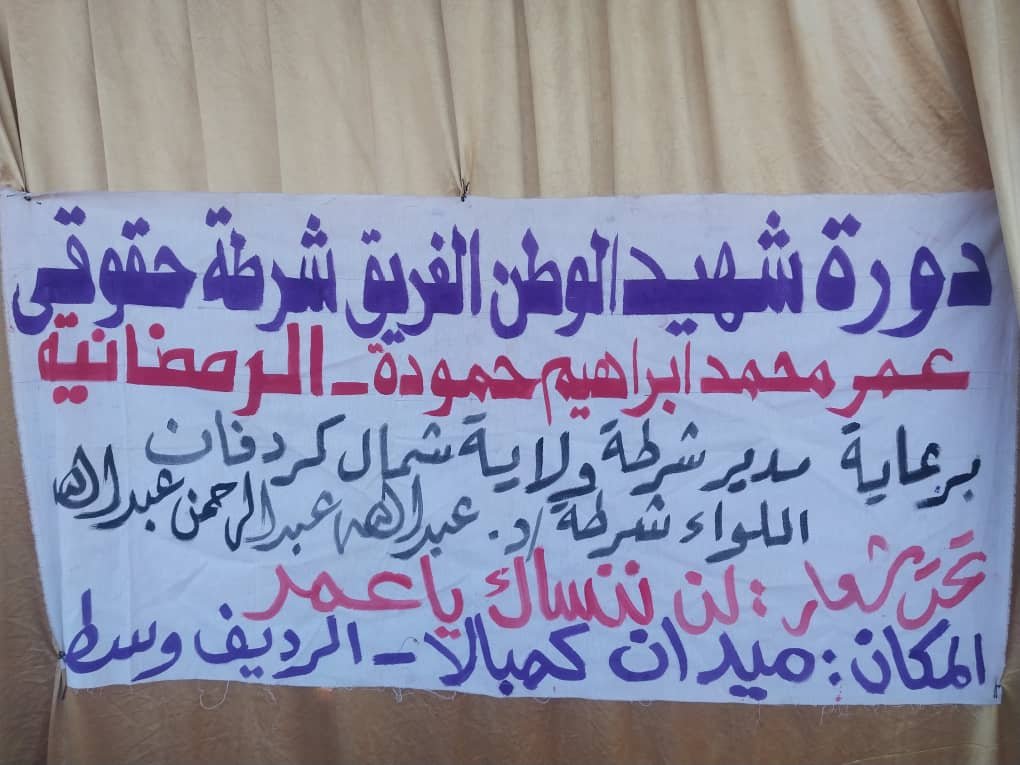 دورة شهيد الوطن الفريق شرطة حقوقي
عمر محمد ابراهيم حمودة - الرمضانية
برعاية مدير شرطة ولاية شمال كردفان
اللواء شرطة / د. عبدالله عبدالرحمن عبدالله
تحت شعار : لن ننساك يا عمر
المكان : ميدان كمبالا - الرديف وسط